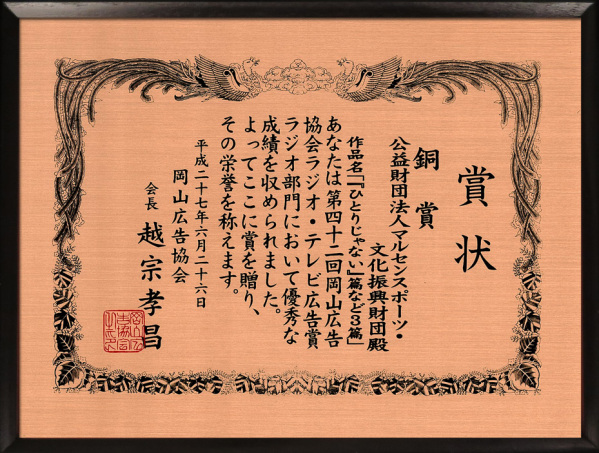 賞状
銅賞
公益財団法人マルセンスポーツ・
文化振興財団殿
作品名「『ひとりじゃない』篇など3篇」
あなたは第四十二回岡山広告
協会ラジオ・テレビ広告賞
ラジオ部門において優秀な
成績を収められました。
よってここに賞を贈り、
その栄誉を称えます。
平成二十七年六月二十六日
岡山広告協会
会長 越宗孝昌